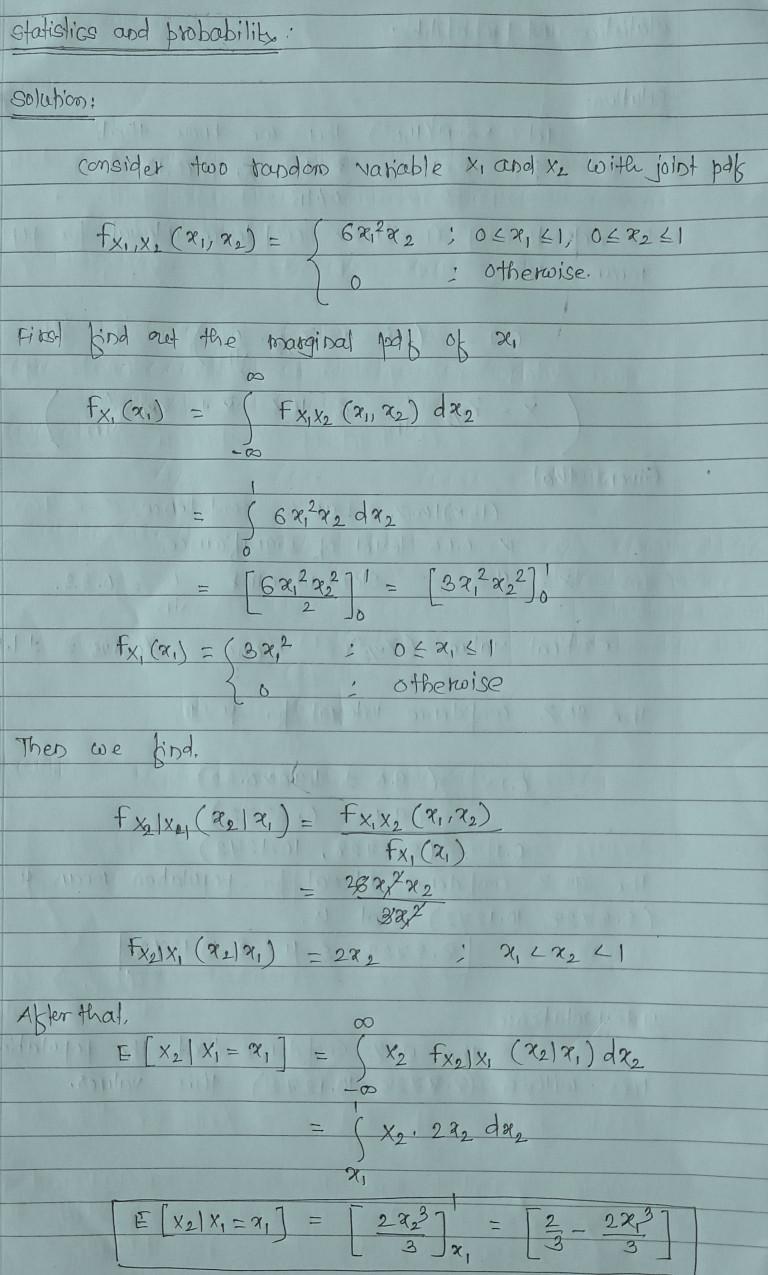 Statistics and probability :
Solution:
Consider two random variable X₁ and X₂ with joint pdf
f_{X₁,X₂} (x₁, x₂) = { 6x₁²x₂ ; 0 ≤ x₁ ≤ 1, 0 ≤ x₂ ≤ 1
0 ; otherwise.
First find out the marginal pdf of x₁
f_{X₁}(x₁) = ∫_{-∞}^{∞} f_{X₁X₂} (x₁, x₂) dx₂
= ∫_0^1 6x₁²x₂ dx₂
= [6x₁²x₂²/2]_0^1 = [3x₁²x₂²]_0^1
f_{X₁}(x₁) = { 3x₁² ; 0 ≤ x₁ ≤ 1
0 ; otherwise
Then we find.
f_{X₂|X₁} (x₂|x₁) = f_{X₁X₂} (x₁, x₂) / f_{X₁}(x₁)
= 6x₁²x₂ / 3x₁²
f_{X₂|X₁} (x₂|x₁) = 2x₂ ; x₁ < x₂ < 1
After that,
E [X₂ | X₁ = x₁] = ∫_{-∞}^{∞} x₂ f_{X₂|X₁} (x₂|x₁) dx₂
= ∫_{x₁}^1 x₂ . 2x₂ dx₂
E [X₂ | X₁ = x₁] = [2x₂³/3]_{x₁}^1 = [2/3 - 2x₁³/3]